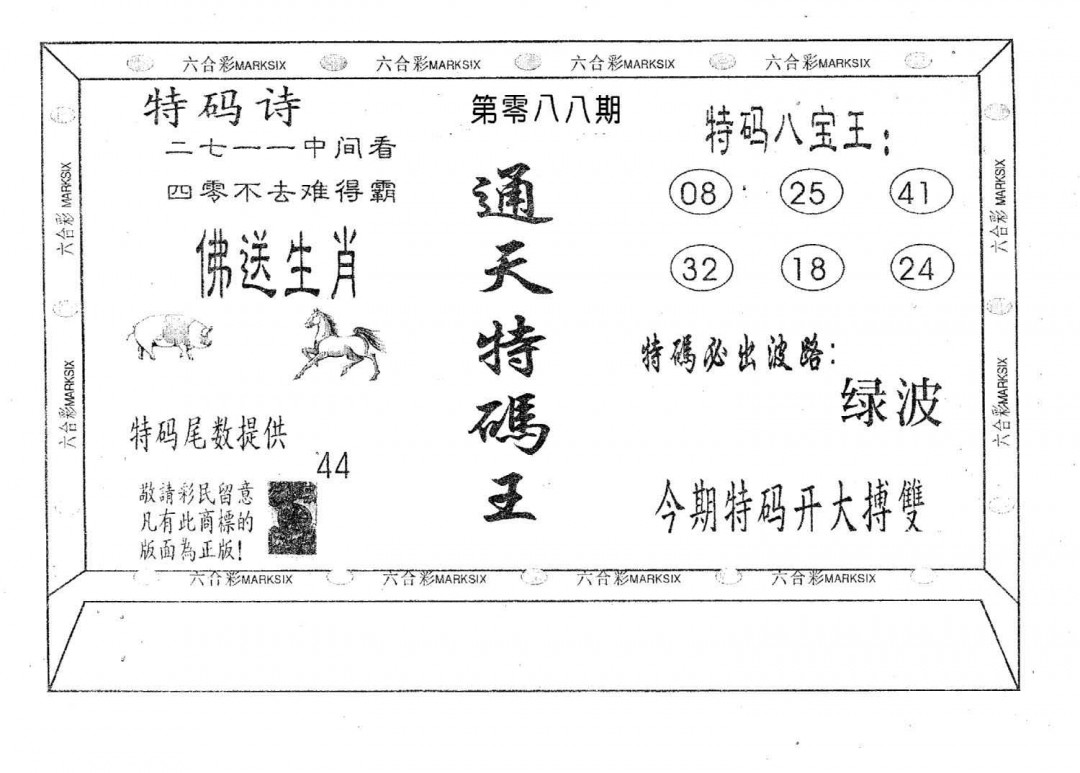 六合彩MARKSIX 六合彩MARKSIX 六合彩MARKSIX 六合彩MARKSIX
六合彩MARKSIX
六合彩MARKSIX
特码诗
二七一一中间看
四零不去难得霸
佛送生肖
特码尾数提供
44
敬請彩民留意
凡有此商標的
版面為正版!
第零八八期
通天特碼王
特码八宝王:
08 25 41
32 18 24
特碼必出波路:
绿波
今期特码开大搏雙
六合彩MARKSIX
六合彩MARKSIX
六合彩MARKSIX 六合彩MARKSIX 六合彩MARKSIX 六合彩MARKSIX